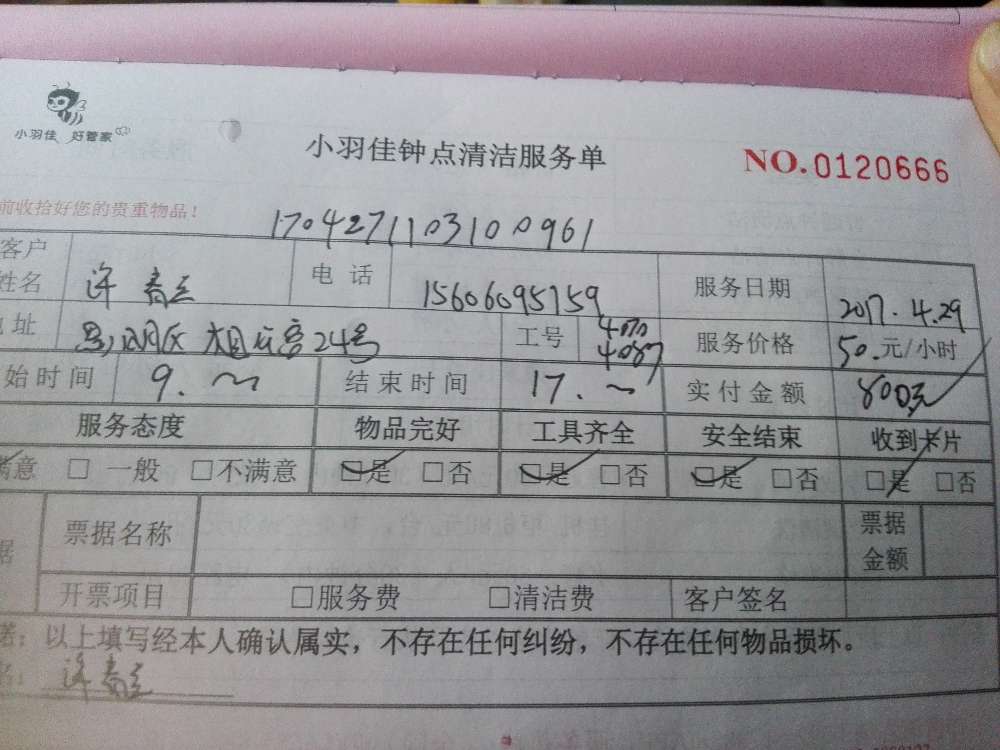 小羽佳 好管家
小羽佳钟点清洁服务单
NO.0120666
前收拾好您的贵重物品!
1704271103100961
客户姓名 许 电话 15606095759 服务日期 2017.4.29
址 思明区 24号 工号 4070 4087 服务价格 50.元/小时
始时间 9.~ 结束时间 17.~ 实付金额 800元
服务态度 物品完好 工具齐全 安全结束 收到卡片
满意 □ 一般 □不满意 □是 □否 □是 □否 □是 □否 □是 □否
据 票据名称 票据金额
开票项目 □服务费 □清洁费 客户签名
诺：以上填写经本人确认属实，不存在任何纠纷，不存在任何物品损坏。
名：许